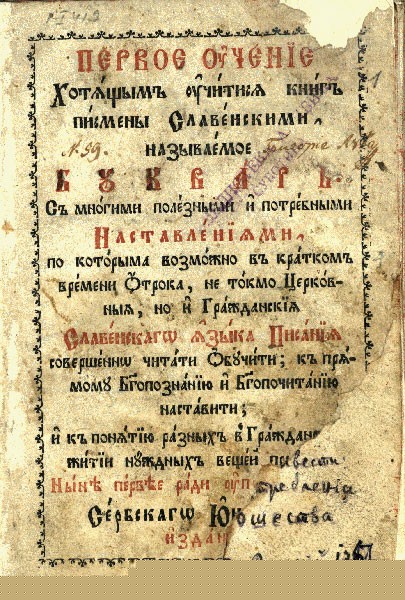 ПЕРВОЕ ОУЧЕНІЕ
Хотѧ́щымъ оучи́тисѧ книгъ
пи́смены Славе́нскими,
называ́емое
БУКВАРЬ
Съ мно́гими поле́зными и҆ потре́бными
Наставле́нїѧми,
по кото́рыма возмо́жно въ кра́ткомъ
вре́мени О҆́трока, не то́кмо Церко́в-
ныѧ, но и҆ Гражда́нскїѧ
Славе́нскагѡ Ѧ҆зы́ка Писа́нїѧ
соверше́ннѡ чита́ти Обучи́ти; къ прѧ-
мому Бг҃опозна́нїю и҆ Бг҃опочита́нїю
наста́вити;
и҆ къ понѧ́тїю ра́зныхъ въ Гражда́н
житїи ну́ждныхъ веще́й при вести
Ны́нѣ пе́рвѣе ра́ди оуп требленія
Се́рбскагѡ Ю҆н ошества
и҆здан